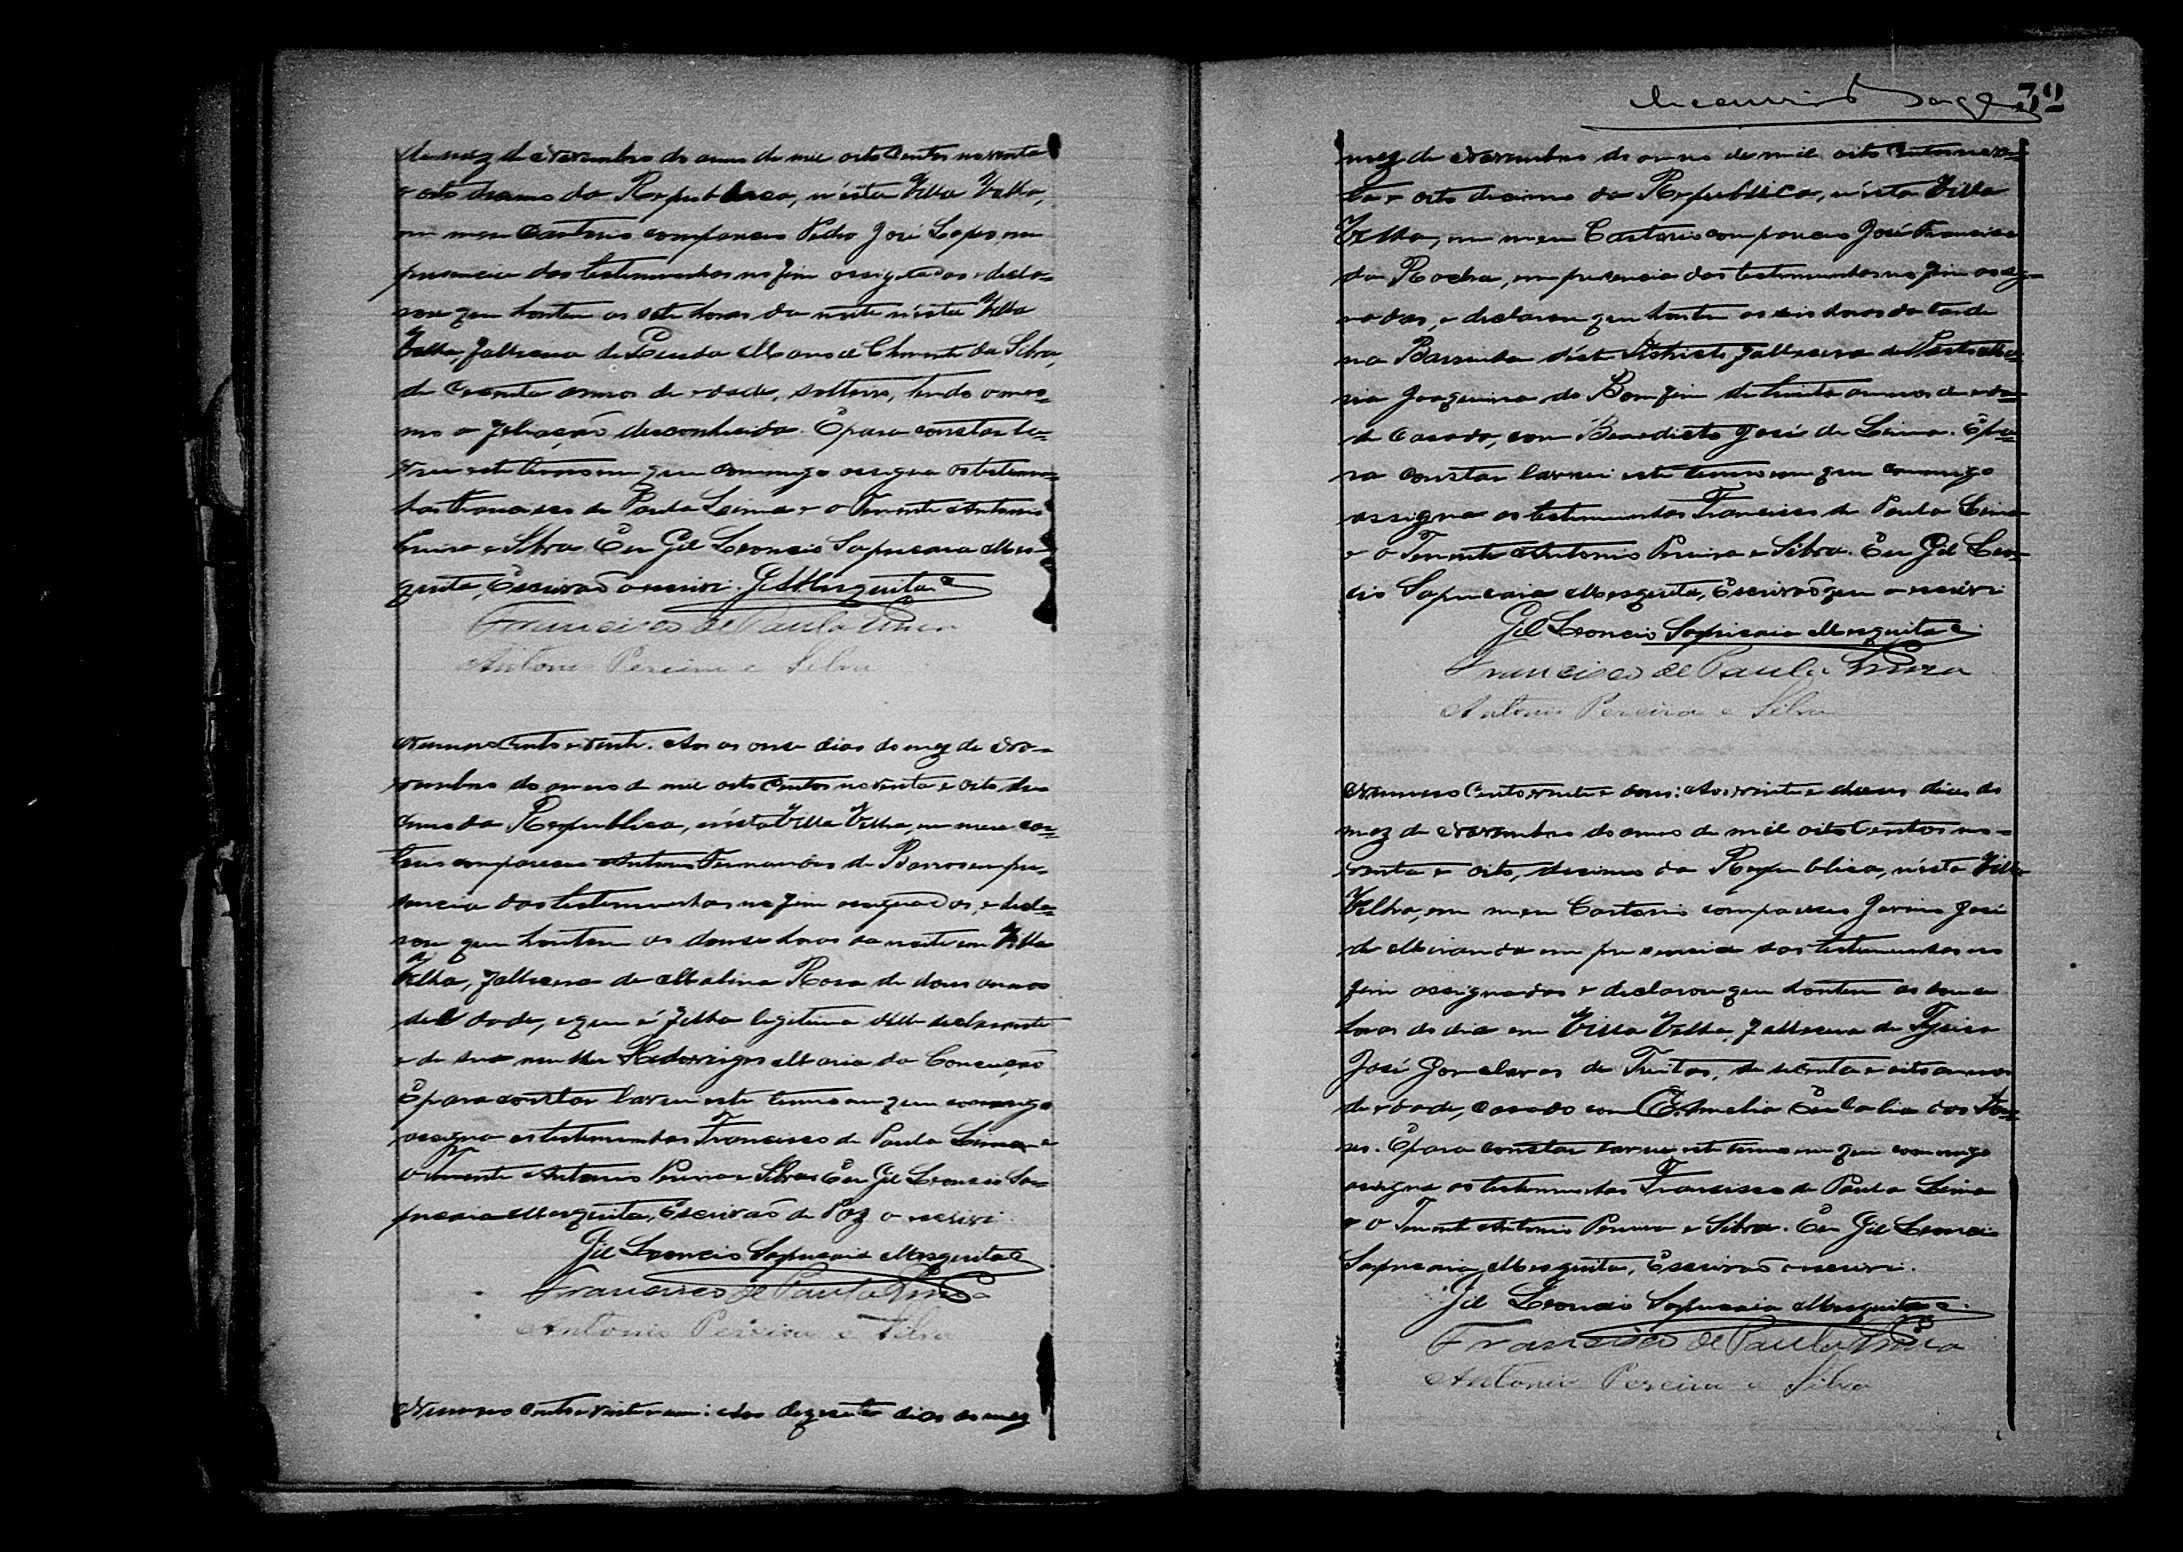 do mez de Novembro do anno de mil oito centos noventa
e oito decimo da Republica, n'ésta Villa Velha,
em meu Cartorio compareceu Pedro José Lopes, em
presencia das testemunhas no fim assignadas e decla=
rou que hontem as sete horas da noite n'ésta Villa
Velha, falleceu de Clemente da Silva,
de annos de edade, solteiro, sendo o mes=
mo a filiação desconhecida. E para constar la=
vrei este termo em que commigo assigna as testemu=
nhas Francisco de Paula Lima e o Tenente Antonio
Pereira e Silva. Eu Gil Leoncio Sapucaia Mes=
quita, Escrivão o escrivi. Gil Mesquita
Francisco de Paula Lima
Antonio Pereira e Silva
Numero Cento e vinte: Aos os onze dias do mez de No=
vembro do anno de mil oito centos noventa e oito de
cimo da Republica, n'ésta Villa Velha, em meu car=
torio compareceu Antonio Fernandes de Barros em pre=
sencia das testemunhas no fim assignadas, e decla=
rou que hontem as horas da noite em Villa
Velha, falleceu de Rosa de dous annos
de edade, e que é filha legitima delle declarante
e de sua mulher Maria da Conceição
E para constar lavrei este termo em que commigo
assigna as testemunhas Francisco de Paula Lima e
o Tenente Antonio Pereira e Silva. Eu Gil Leoncio Sa=
pucaia Mesquita, Escrivão de Paz o escrivi
Gil Leoncio Sapucaia Mesquita
Francisco de Paula Lima
Antonio Pereira e Silva
Numero cento e vinte e um: Aos dezesete dias do mez
32
mez de Novembro do anno de mil oito centos noven=
ta e oito decimo da Republica, n'ésta Villa
Velha, em meu Cartorio compareceu José Francisco
da Rocha, em presencia das testemunhas no fim assig=
nadas, e declarou que hontem as seis horas da tarde
na Barrinha d'éste districto falleceu de Parto Ma=
ria Joaquina do Bomfim de trinta annos de eda=
de Casada, com Benedicto José de Lima. E pa=
ra constar lavrei este termo em que commigo
assigna as testemunhas Francisco de Paula Lima
e o Tenente Antonio Pereira e Silva. Eu Gil Leon=
cio Sapucaia Mesquita, Escrivão que o escrivi
Gil Leoncio Sapucaia Mesquita
Francisco de Paula Lima
Antonio Pereira e Silva
Numero Cento vinte e dous: Aos vinte e dias do
mez de Novembro do anno de mil oito Centos no=
venta e oito, decimo da Republica, n'ésta Villa
Velha, em meu Cartorio compareceu José
de Miranda em presencia das testemunhas no
fim assignadas e declarou que hontem as
horas do dia em Villa Velha, falleceu de Tysica
José Gonclaves de Freitas, de e oito annos
de edade, casado com Amelia Eulalia dos
E para constar lavrei este termo em que commigo
assigna as testemunhas Francisco de Paula Lima
e o Tenente Antonio Pereira e Silva. Eu Gil Leoncio
Sapucaia Mesquita, Escrivão o escrivi.
Gil Leoncio Sapucaia Mesquita
Francisco de Paula Lima
Antonio Pereira e Silva